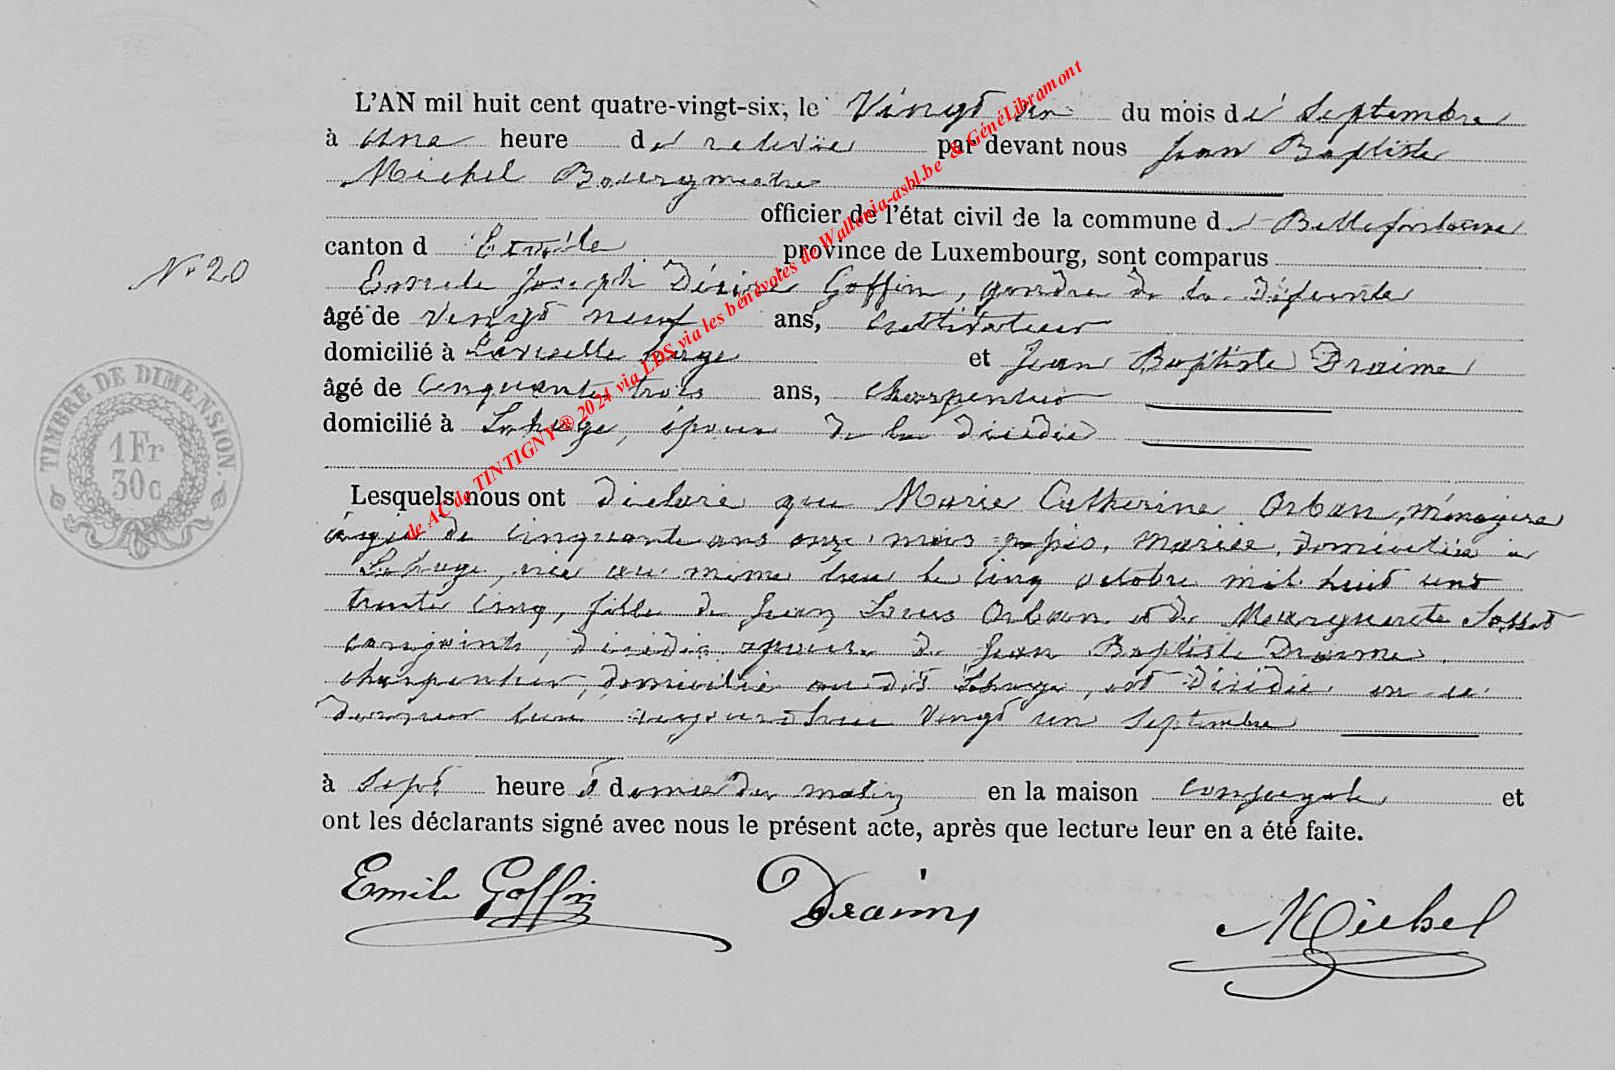 L'AN mil huit cent quatre-vingt-six, le Vingt un du mois de Septembre
à une heure de relevée par devant nous Jean Baptiste
Michel Bourgmestre
officier de l'état civil de la commune de Bellefontaine
canton d' Etalle province de Luxembourg, sont comparus
Emile Joseph Désiré Goffin, gendre de la Défunte
âgé de Vingt neuf ans, Cultivateur
domicilié à et Jean Baptiste Draime
âgé de Cinquante trois ans, Charpentier
domicilié à Lahage, époux de la décédée
N° 20
TIMBRE DE DIMENSION.
1 Fr
30 c
Lesquels nous ont déclaré que Marie Catherine Orban, ménagère
âgée de cinquante ans onze mois mariée, domiciliée à
Lahage, née au même lieu le cinq octobre mil huit cent
trente cinq, fille de Jean Louis Orban et de Marguerite Sosset
conjoints, décédée épouse de Jean Baptiste Draime
charpentier, domicilié au dit Lahage, est décédée en ce
dernier lieu aujourd'hui Vingt un Septembre
à Sept heure et demie du matin en la maison conjugale et
ont les déclarants signé avec nous le présent acte, après que lecture leur en a été faite.
Emile Goffin Draime Michel
de AC de TINTIGNY® 2024 via LDS via les bénévoles de Wallonia-asbl.be & GénéLibramont